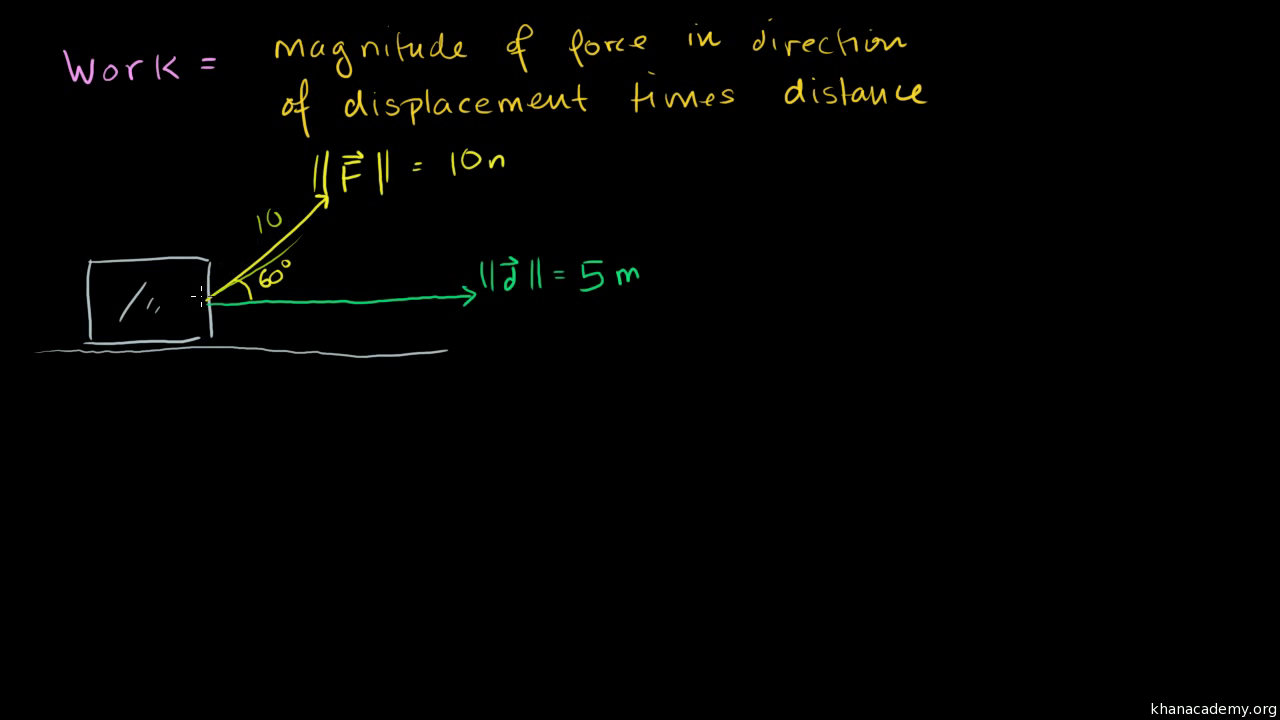 Work = magnitude of force in direction
of displacement times distance
||F⃗|| = 10n
10
60°
||d⃗|| = 5 m
khanacademy.org